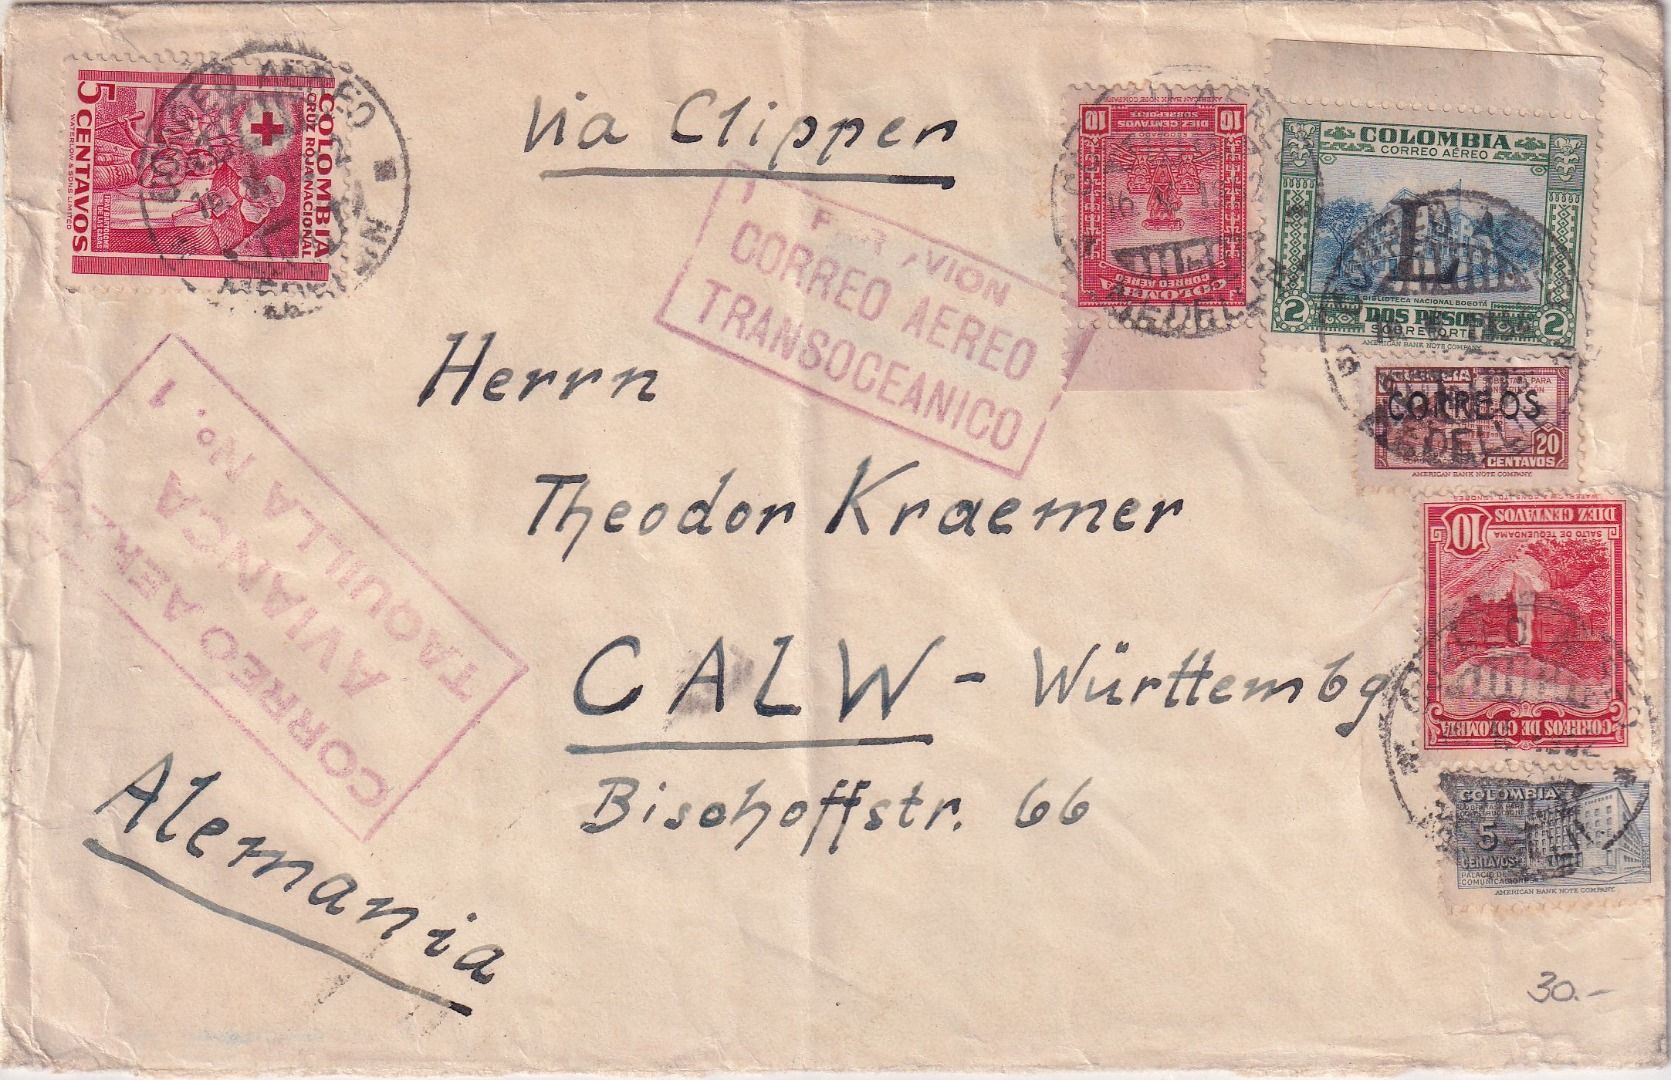 COLOMBIA
CRUZ ROJA NACIONAL
5 CENTAVOS
WATERLOW & SONS LIMITED
via Clipper
CORREO AEREO
TRANSOCEANICO
AMERICAN BANK NOTE COMPANY
10 10
DIEZ CENTAVOS
SOBREPORTE
CORREO AEREO
COLOMBIA
MEDELLIN
COLOMBIA
CORREO AÉREO
L
BIBLIOTECA NACIONAL BOGOTÁ
2 DOS PESOS 2
SOBREPORTE
AMERICAN BANK NOTE COMPANY
CORREOS
20
CENTAVOS
AMERICAN BANK NOTE COMPANY
10 DIEZ CENTAVOS
SALTO DE TEQUENDAMA
CORREOS DE COLOMBIA
COLOMBIA
SOBRETASA PARA
5
CENTAVOS
PALACIO DE
COMUNICACIONES
AMERICAN BANK NOTE COMPANY
CORREO AEREO
AVIANCA
TAQUILLA No. 1
Herrn
Theodor Kraemer
CALW - Württembg
Bischoffstr. 66
Alemania
30.-